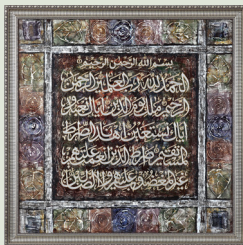 بسم الله الرحمن الرحيم
الحمد لله رب العلمين الرحمن
الرحيم ملك يوم الدين إياك نعبد و
إياك نستعين اهدنا الصراط
المستقيم صراط الذين أنعمت عليهم
غير المغضوب عليهم ولا الضالين